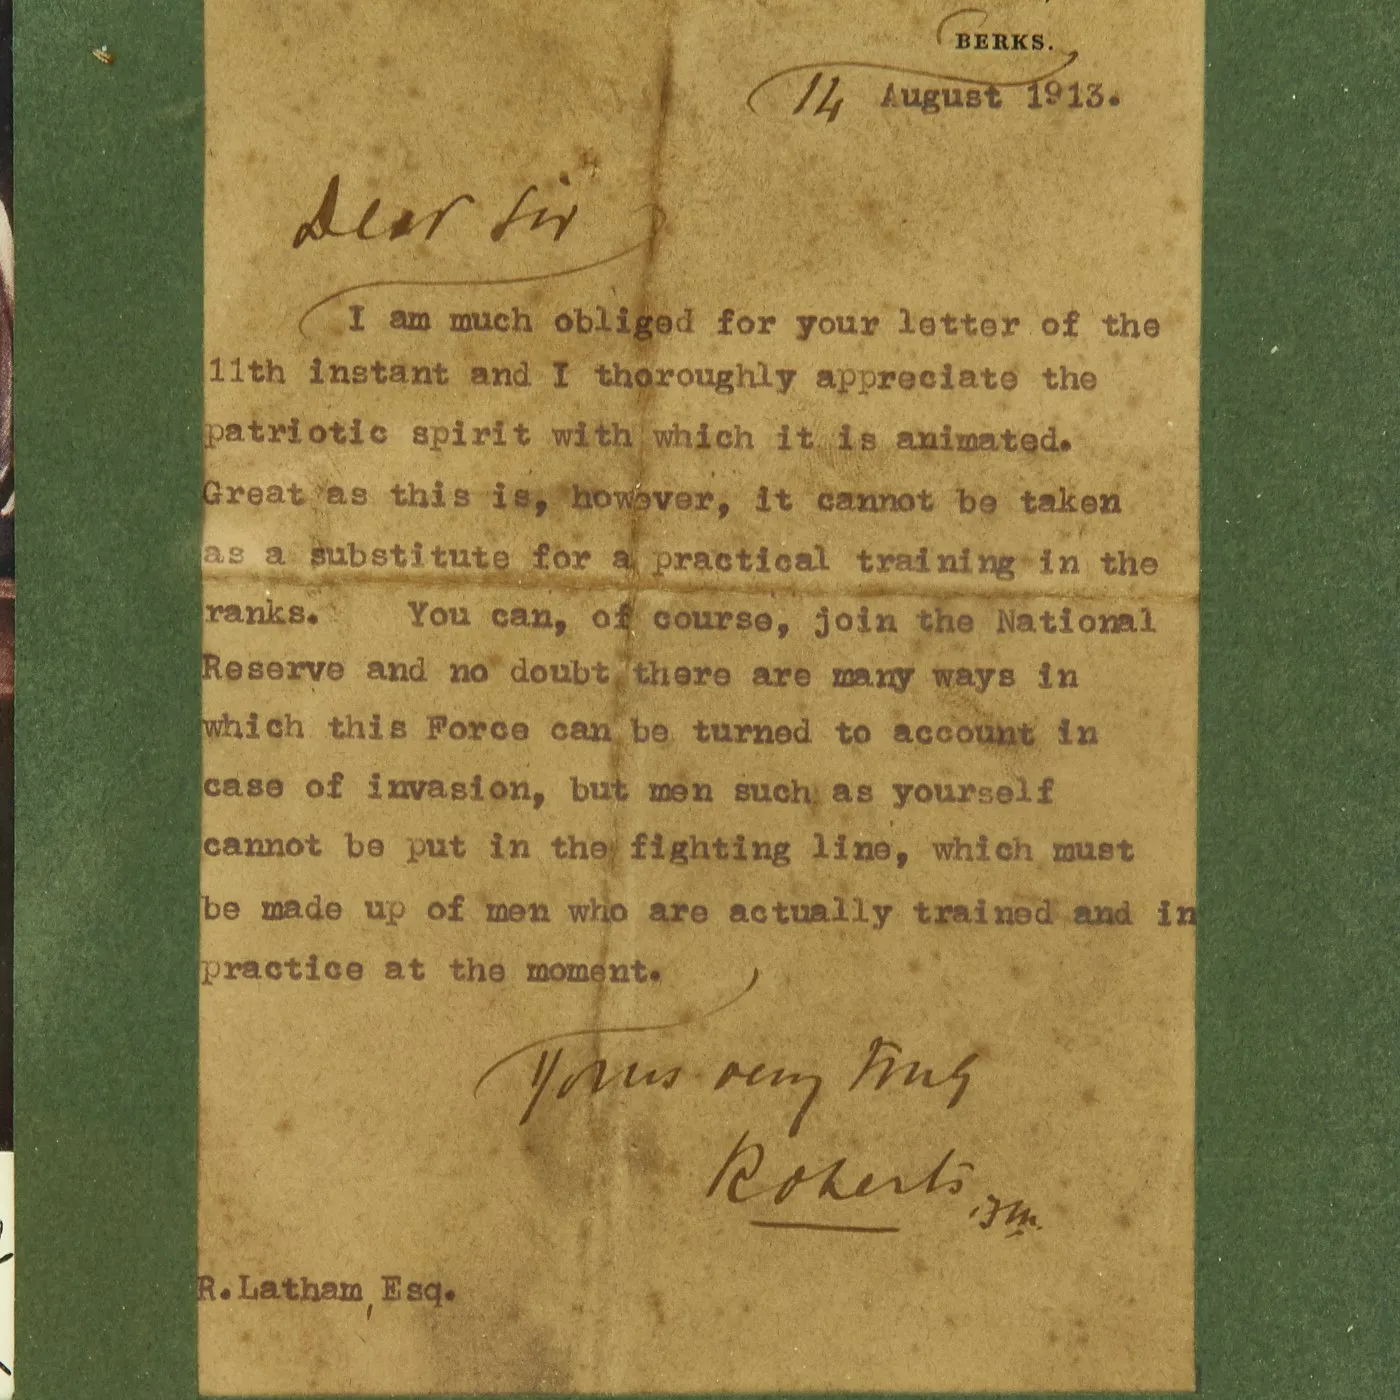 BERKS.
14 August 1913.
Dear Sir
I am much obliged for your letter of the
11th instant and I thoroughly appreciate the
patriotic spirit with which it is animated.
Great as this is, however, it cannot be taken
as a substitute for a practical training in the
ranks. You can, of course, join the National
Reserve and no doubt there are many ways in
which this Force can be turned to account in
case of invasion, but men such as yourself
cannot be put in the fighting line, which must
be made up of men who are actually trained and in
practice at the moment.
Yours very truly
Roberts, FM.
R.Latham, Esq.